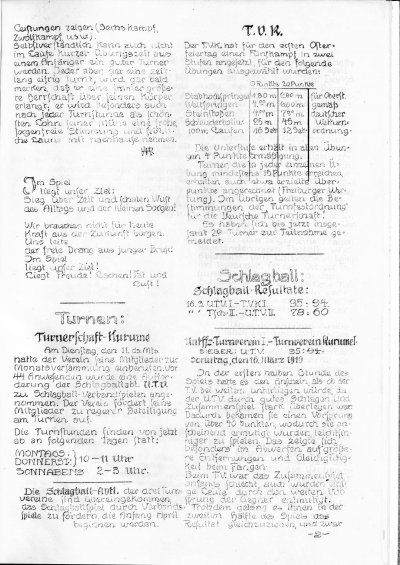 Leistungen zeigen (Sechskampf,
Zwölfkampf u.s.w.)
Selbstverständlich kann auch nicht
im Laufe kurzer Übungszeit aus
einem Anfänger ein guter Turner
werden. Jeder aber der eine Zeit-
lang eifrig turnt, wird gar bald
merken, daß er eine immer größe-
re Herrschaft über seinen Körper
erlangt, er wird besonders auch
nach jeder Turnstunde als schön-
sten Lohn immer eine frohe
sorgenfreie Stimmung und fröhli-
che Laune mit nachhause nehmen.
Im Spiel
liegt unser Ziel:
Sieg über Zeit und schalen Wust
des Alltags und der kleinen Sorgen!
Wir brauchen nicht für heute
Kraft aus der Zukunft borgen.
Uns leite
der freie Drang aus junger Brust!
Im Spiel
liegt unser Ziel!
Giegt Freude! Tat und
Lust!
Turnen:
Turnerschaft-Kurume
Am Dienstag, den 11. ds. Mts.
hatte der Verein seine Mitglieder zur
Monatsversammlung anberufen. Vor
44 Anwesenden wurde eine Auffor-
derung der Schlagballabt. U.T.V.
zu Schlagball-Verbandsspielen ange-
nommen. Der Verein fordert seine
Mitglieder zu regerer Beteiligung
am Turnen auf.
Die Turnstunden finden von jetzt
ab an folgenden Tagen statt:
MONTAGS:
DONNERST.: } 10-11 Uhr
SONNABENDS 2-3 Uhr.
Die Schlagball-Abtl. der drei Turn-
vereine sind übereingekommen,
das Schlagballspiel durch Verbands-
spiele zu fördern, die Anfang April
beginnen werden.
T.V.K.
Der T.V.K. hat für den ersten Oster-
feiertag einen Fünfkampf in zwei
Stufen angesetzt, für den folgende
Übungen ausgewählt wurden:
0 Punkte 20 Punkte
Stabhochspringen
Weitspringen
Steinstoßen
Schleuderball
100m. Laufen
Die Unterstufe erhält in allen Übun-
gen 4 Punkte Ermäßigung.
Turner, die in jeder einzelnen Ü-
bung mindestens 15 Punkte erreichen,
erhalten auch etwa erzielte Über-
punkte angerechnet (Freiburger Wer-
tung). Im Übrigen gelten die Be-
stimmungen der Turnfestordnung
für die Deutsche Turnerschaft!
Es haben sich bis jetzt insge-
samt 29 Turner zur Teilnahme ge-
meldet.
Schlagball:
Schlagball-Resultate:
16.3. U.T.V.I.-T.V.K.I. 95:94.
" " Tsch.II.-U.T.V.II. 78:60
-Turnverein I.-Turnverein Kurume I.
SIEGER: U.T.V. 95:94.
Sonntag, den 16. März 1919
In der ersten halben Stunde des
Spiels hatte es den Anschein, als ob der
T.V. bei weitem unterliegen würde, da
der U.T.V. durch gutes Schlagen und
Zusammenspiel stark überlegen war.
Dadurch bekamen sie einen Vorsprung
von über 40 Punkten, wodurch sie an-
scheinend ermutigt wurden, leichtsin-
niger zu spielen. Das zeigte sich
besonders im Abwerfen auf größe-
re Entfernungen und Gleichgültig-
keit beim Fangen.
Beim T.V. war das Zusammenspiel
anfangs schlecht, auch wurden eini-
ge Leute durch den weiten Vor-
sprung der Gegner entmutigt.
Trotzdem gelang es ihnen in der
zweiten Hälfte des Spiels das
Resultat gleichzuziehen, und zwar
-2-